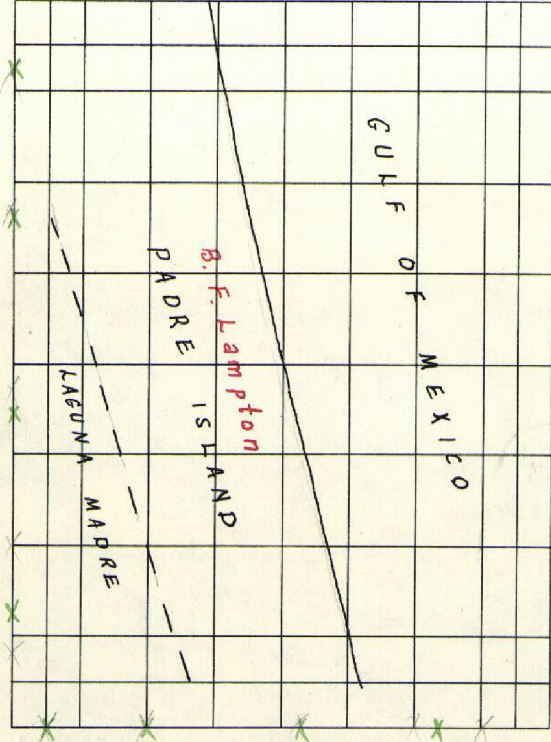 GULF OF MEXICO
B. F. Lampton
PADRE ISLAND
LAGUNA MADRE